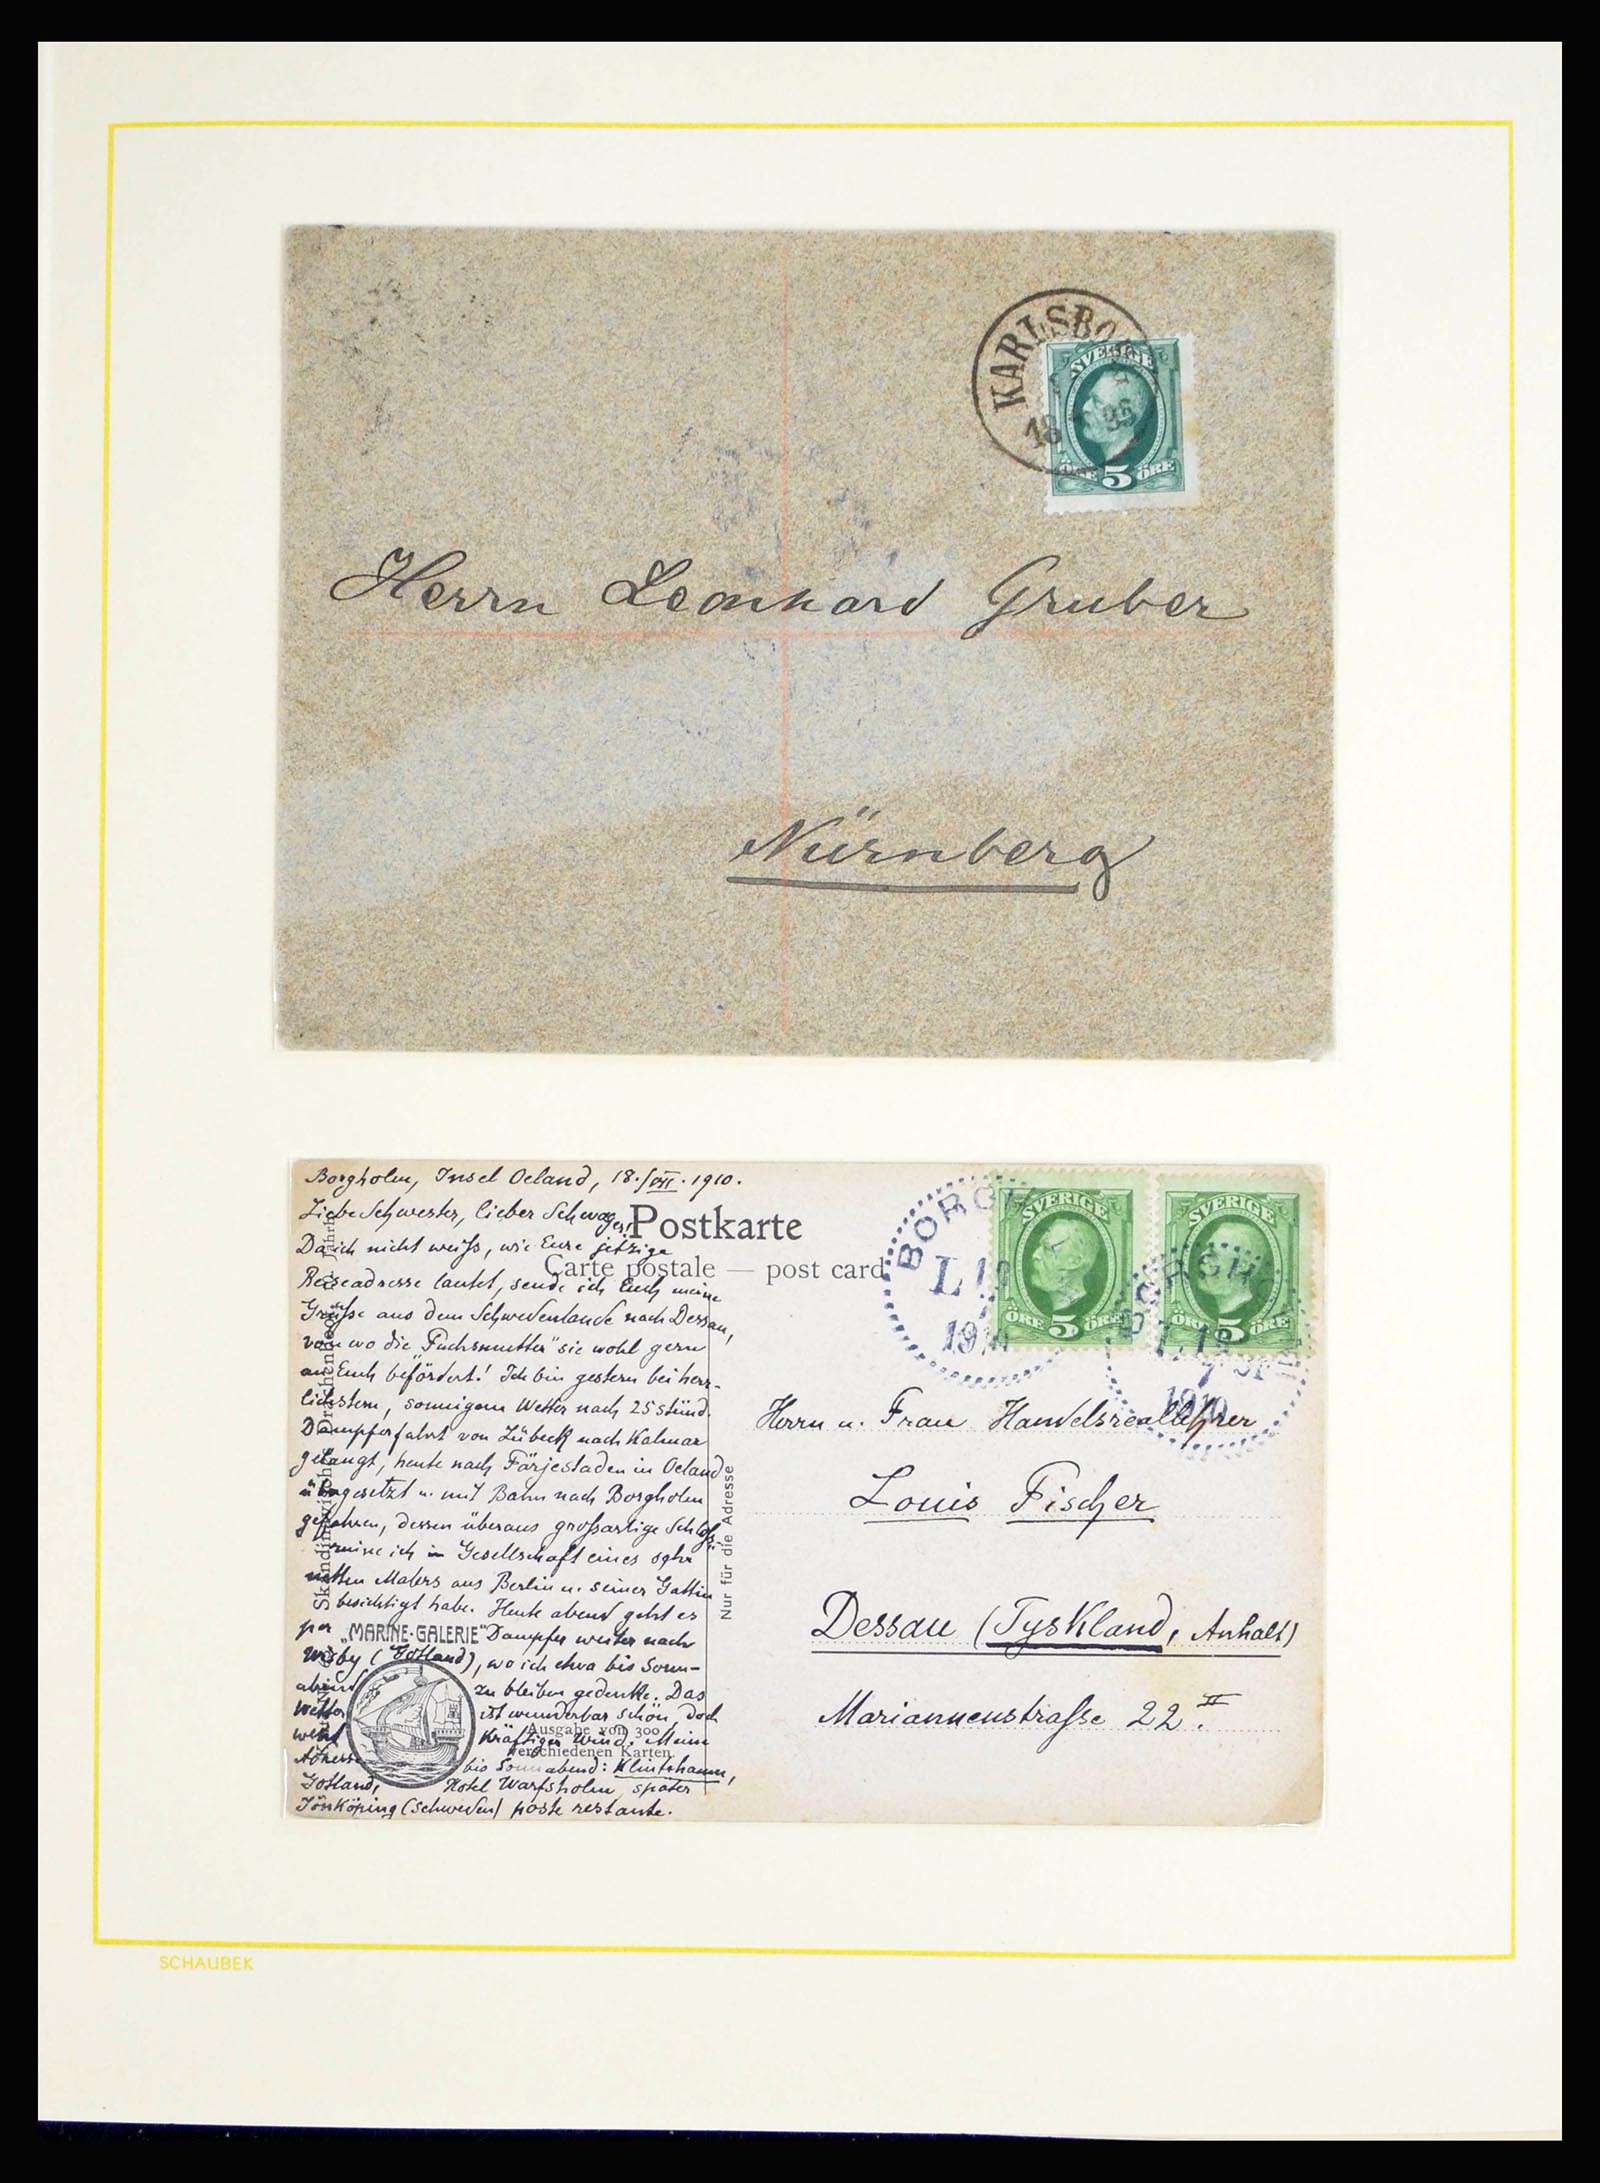 KARLSBO
18 95
SVERIGE
ÖRE 5 ÖRE
Herrn Leonhard Gruber
Nürnberg
Borgholm, Insel Oeland, 18./VII.1910.
Liebe Schwester, lieber Schwager!
Da ich nicht weiß, wie Eure jetzige
Reiseadresse lautet, sende ich Euch meine
Grüße aus dem Schwedenlande nach Dessau,
von wo die "Fuchsmutter" sie wohl gern
an Euch befördert! Ich bin gestern bei herr-
lichstem, sonnigem Wetter nach 25 stünd.
Dampferfahrt von Lübeck nach Kalmar
gelangt, heute nach Färjestaden in Oeland
übergesetzt u. mit Bahn nach Borgholm
gefahren, dessen überaus großartige Schloß-
ruine ich in Gesellschaft eines sehr
netten Malers aus Berlin u. seiner Gattin
besichtigt habe. Heute abend geht es
per Dampfer weiter nach
Wisby (Gotland), wo ich etwa bis Sonn-
abend zu bleiben gedenke. Das
Wetter ist wunderbar schön, doch
weht kräftiger Wind. Meine
Adresse bis Sonnabend: Klintehamn,
Gotland, Hotel Warfsholm, später
Jönköping (Schweden) poste restante.
Postkarte
Carte postale — post card
"MARINE-GALERIE"
Ausgabe von 300
verschiedenen Karten
Nur für die Adresse
BORGH
L 18
1910
SVERIGE
ÖRE 5 ÖRE
SVERIGE
ÖRE 5 ÖRE
BORGHO
18
1910
Herrn u. Frau Handelsreallehrer
Louis Fischer
Dessau (Tyskland, Anhalt)
Mariannenstraße 22 II.
SCHAUBEK